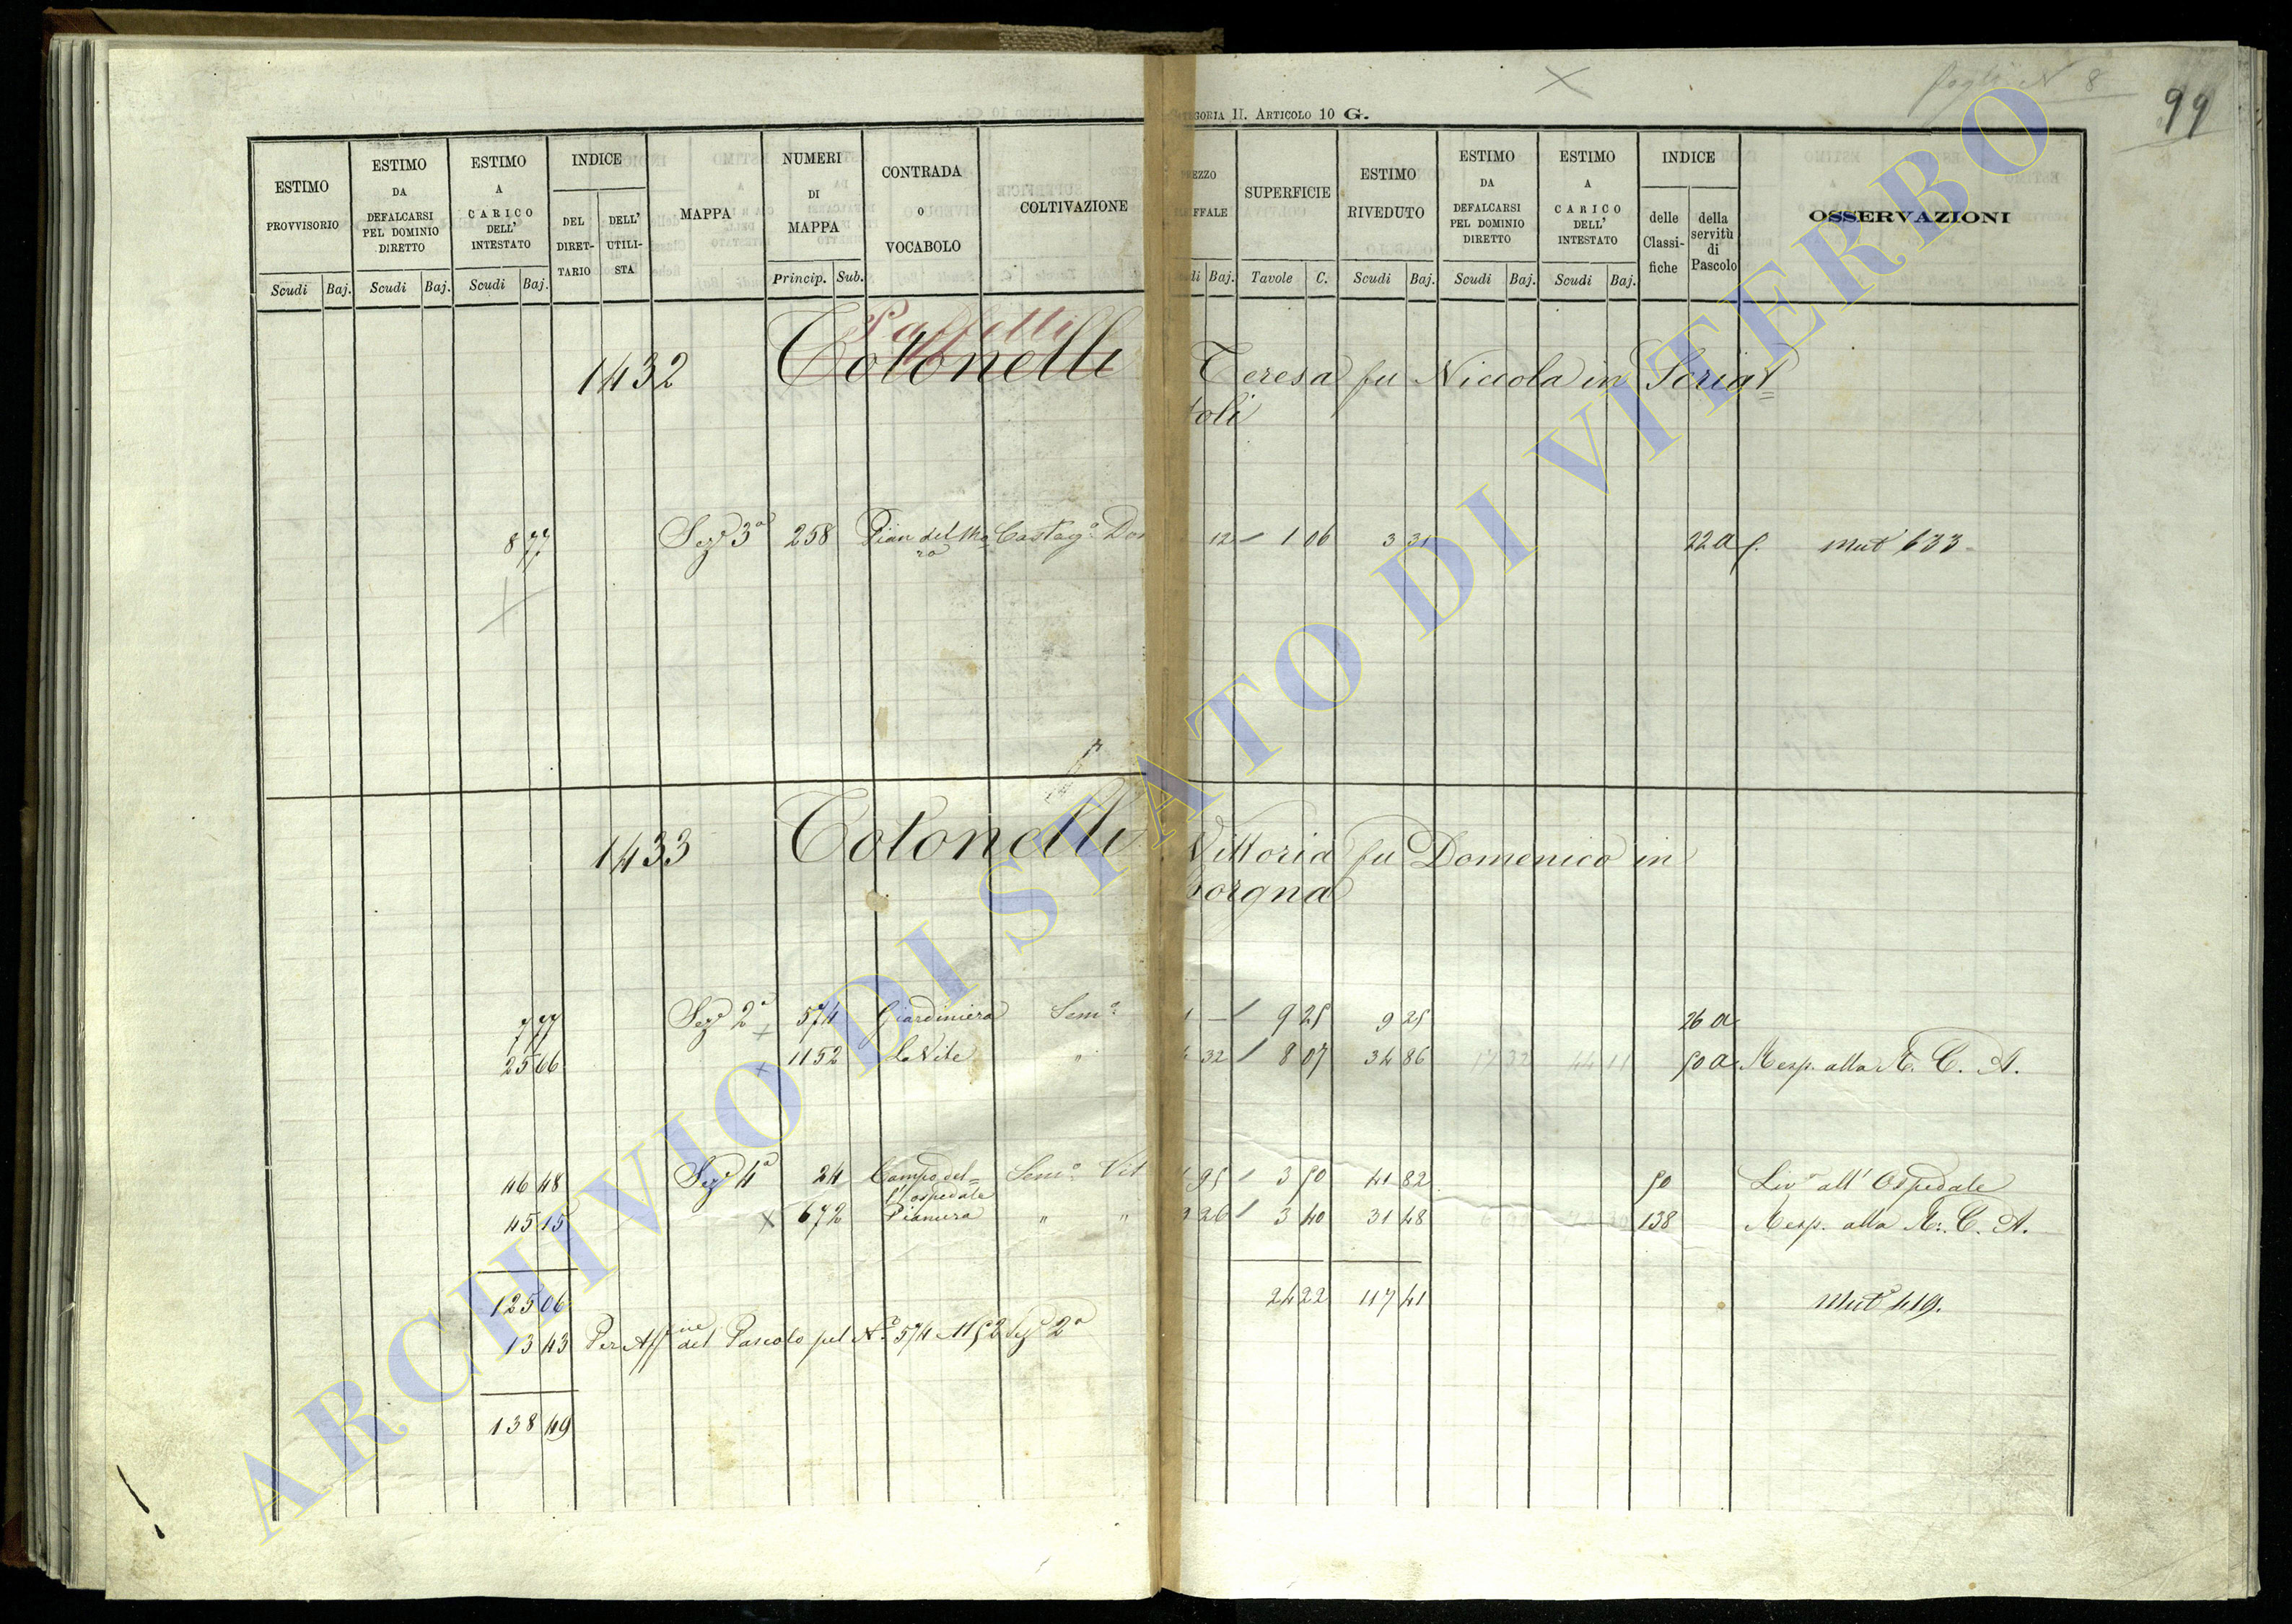 CATEGORIA II. ARTICOLO 10 G.
99
ESTIMO PROVVISORIO Scudi Baj.
ESTIMO DA DEFALCARSI PEL DOMINIO DIRETTO Scudi Baj.
ESTIMO A CARICO DELL' INTESTATO Scudi Baj.
INDICE DEL DIRET-TARIO DELL' UTILI-STA
MAPPA
NUMERI DI MAPPA Princip. Sub.
CONTRADA O VOCABOLO
COLTIVAZIONE
Baj.
SUPERFICIE Tavole C.
ESTIMO RIVEDUTO Scudi Baj.
ESTIMO DA DEFALCARSI PEL DOMINIO DIRETTO Scudi Baj.
ESTIMO A CARICO DELL' INTESTATO Scudi Baj.
INDICE delle Classi-fiche della servitù di Pascolo
OSSERVAZIONI
1432 Totonelli Teresa fu Niccola in Scriat=
toli
8 77 Sez.e 3a 258 Pian del Mo= Castag.o 12 1 06 3 31 22 a f. Mut.a 633
ro
1433 Totonelli Vittoria fu Domenico in
Borgna
7 77 Sez.e 2a 574 Giardiniera Sem.o 1 — 9 25 9 25 26 a
25 66 1152 La Vite " 32 8 07 34 86 17 32 44 11 50 a Resp. alla R. C. A.
46 48 Sez.e 4a 24 Campo del= Sem.o Vit 95 3 50 41 82 50 Liv.o all' Ospedale
l'ospedale
45 15 672 Pianura " " 26 3 40 31 48 138 Resp. alla R. C. A.
125 06 24 22 117 41 Mut.a 419.
13 43 Per Aff.ne del Pascolo pel N.o 574 1152 Sez.e 2a
138 49
ARCHIVIO DI STATO DI VITERBO